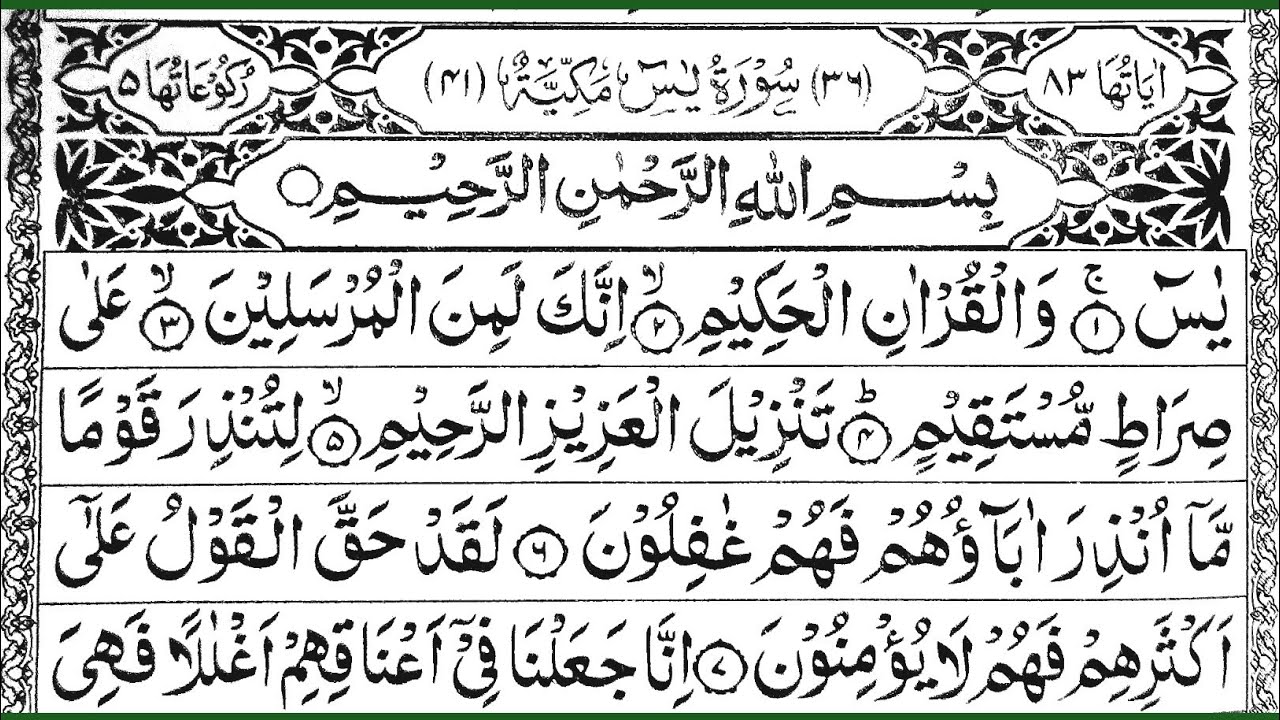 اٰيَاتُهَا ٨٣ (٣٦) سُوْرَةُ يٰسٓ مَكِّيَّةٌ (٤١) رُكُوْعَاتُهَا ٥
بِسْمِ اللّٰهِ الرَّحْمٰنِ الرَّحِيْمِ ۝
يٰسٓ ۚ ﴿١﴾ وَالْقُرْاٰنِ الْحَكِيْمِ ۙ ﴿٢﴾ اِنَّكَ لَمِنَ الْمُرْسَلِيْنَ ۙ ﴿٣﴾ عَلٰى
صِرَاطٍ مُّسْتَقِيْمٍ ؕ ﴿٤﴾ تَنْزِيْلَ الْعَزِيْزِ الرَّحِيْمِ ۙ ﴿٥﴾ لِتُنْذِرَ قَوْمًا
مَّآ اُنْذِرَ اٰبَآؤُهُمْ فَهُمْ غٰفِلُوْنَ ﴿٦﴾ لَقَدْ حَقَّ الْقَوْلُ عَلٰٓى
اَكْثَرِهِمْ فَهُمْ لَا يُؤْمِنُوْنَ ﴿٧﴾ اِنَّا جَعَلْنَا فِيْٓ اَعْنَاقِهِمْ اَغْلٰلًا فَهِىَ